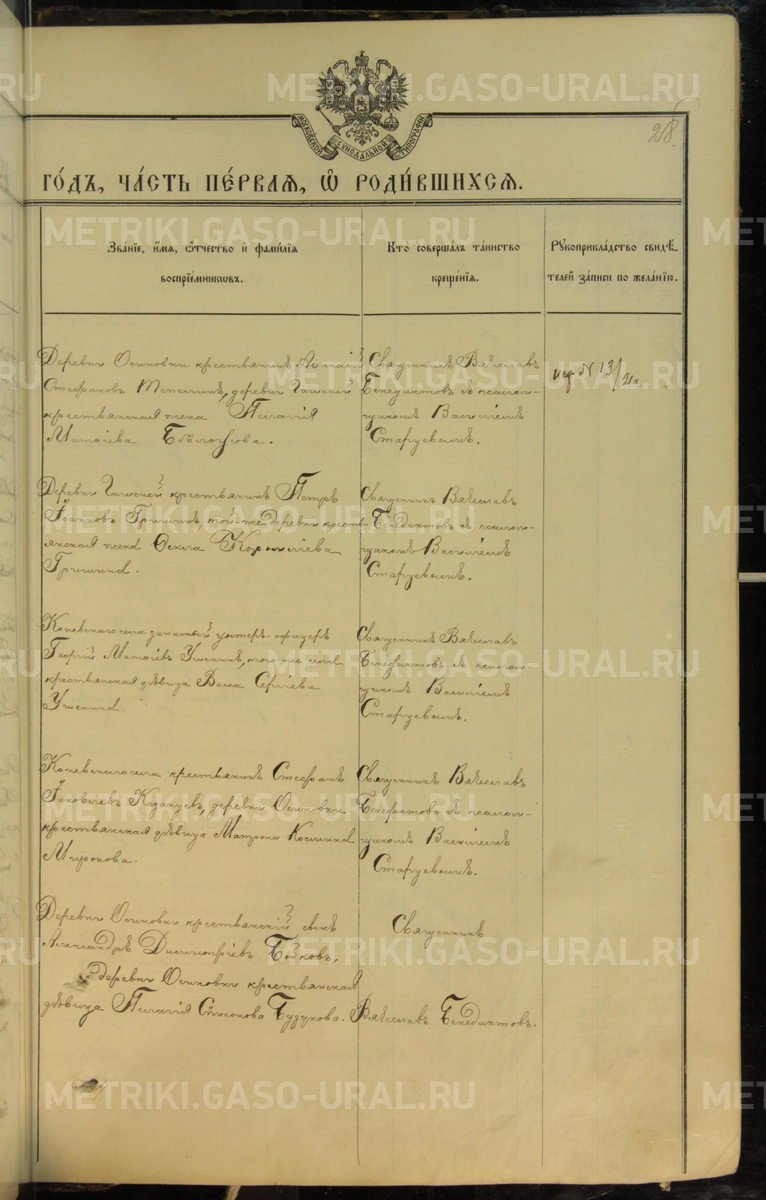 METRIKI.GASO-URAL.RU
МОСКОВСКОЙ СѴНОДАЛЬНОЙ ТИПОГРАФІИ
28.
ГО́ДЪ, ЧА́СТЬ ПЕ́РВАЯ, Ѽ РОДИ́ВШИХСЯ.
Зва́ніе, и́мя, ѻ́тчество и҆ фами́лія
воспріе́мникѡвъ.
Кто совершалъ та́инство
креще́нія.
Рꙋкоприкла́дство свидѣ́-
телей за́писи по жела́нію.
Деревни Осиновки крестьянинъ Аѳанасій
Стефановъ деревни
крестьянская жена Пелагія
Матѳіева Бѣлоусова.
Священникъ Вячеславъ
Бенедиктовъ съ псалом-
щикомъ Василіемъ
Старцевымъ.
№ 13/
Деревни крестьянинъ Петръ
Іоанновъ Гришинъ, той-же деревни кресть-
янская жена Ѳекла Корнилiева
Гришина.
Священникъ Вячеславъ
Бенедиктовъ съ псалом-
щикомъ Василіемъ
Старцевымъ.
Коневскаго села запасный унтеръ-офицеръ
Георгій Матѳіевъ Ушенинъ, того же села
крестьянская дѣвица Васса Сергіева
Ушенина.
Священникъ Вячеславъ
Бенедиктовъ съ псалом-
щикомъ Василіемъ
Старцевымъ.
Коневскаго села крестьянинъ Стефанъ
Іаковлевъ Казанцевъ, деревни Осиновки
крестьянская дѣвица Матрона Космина
Миронова.
Священникъ Вячеславъ
Бенедиктовъ съ псалом-
щикомъ Василіемъ
Старцевымъ.
Деревни Осиновки крестьянскій сынъ
Александръ Димитріевъ Бойковъ,
деревни Осиновки крестьянская
дѣвица Пелагія Сѷмеонова Бузунова.
Священникъ
Вячеславъ Бенедиктовъ.